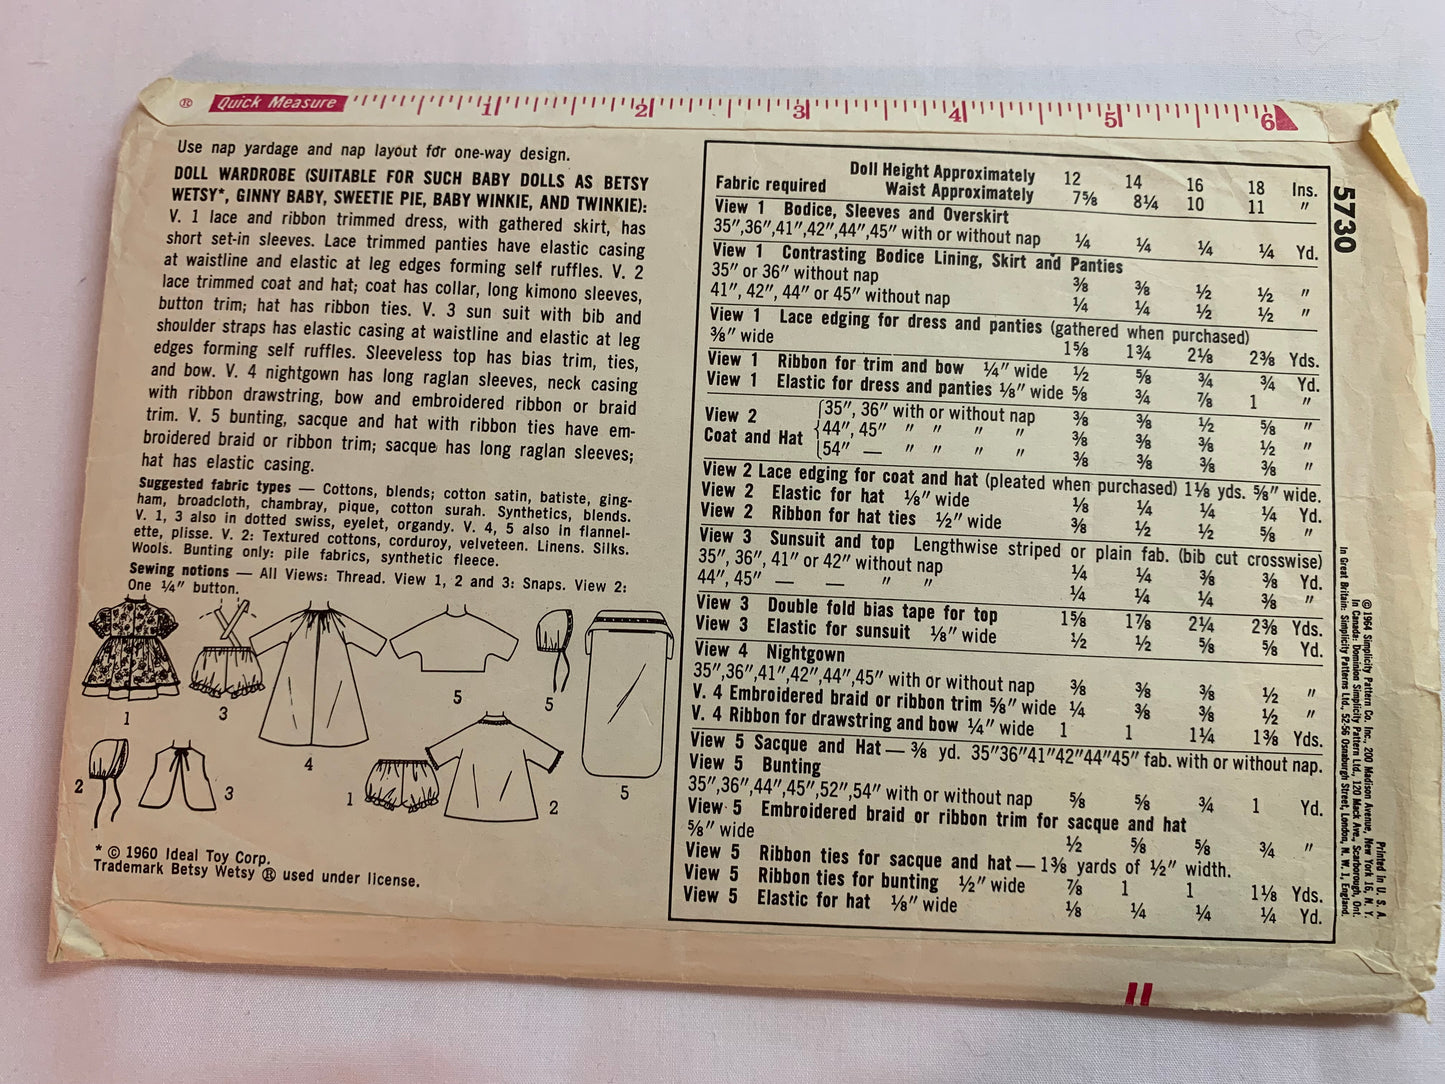 ® Quick Measure 1 2 3 4 5 6
Use nap yardage and nap layout for one-way design.
DOLL WARDROBE (SUITABLE FOR SUCH BABY DOLLS AS BETSY
WETSY*, GINNY BABY, SWEETIE PIE, BABY WINKIE, AND TWINKIE):
V. 1 lace and ribbon trimmed dress, with gathered skirt, has
short set-in sleeves. Lace trimmed panties have elastic casing
at waistline and elastic at leg edges forming self ruffles. V. 2
lace trimmed coat and hat; coat has collar, long kimono sleeves,
button trim; hat has ribbon ties. V. 3 sun suit with bib and
shoulder straps has elastic casing at waistline and elastic at leg
edges forming self ruffles. Sleeveless top has bias trim, ties,
and bow. V. 4 nightgown has long raglan sleeves, neck casing
with ribbon drawstring, bow and embroidered ribbon or braid
trim. V. 5 bunting, sacque and hat with ribbon ties have em-
broidered braid or ribbon trim; sacque has long raglan sleeves;
hat has elastic casing.
Suggested fabric types — Cottons, blends; cotton satin, batiste, ging-
ham, broadcloth, chambray, pique, cotton surah. Synthetics, blends.
V. 1, 3 also in dotted swiss, eyelet, organdy. V. 4, 5 also in flannel-
ette, plisse. V. 2: Textured cottons, corduroy, velveteen. Linens. Silks.
Wools. Bunting only: pile fabrics, synthetic fleece.
Sewing notions — All Views: Thread. View 1, 2 and 3: Snaps. View 2:
One ¼" button.
1
3
4
5
5
5
2
3
1
2
* © 1960 Ideal Toy Corp.
Trademark Betsy Wetsy ® used under license.
Doll Height Approximately 12 14 16 18 Ins.
Fabric required Waist Approximately 7⅝ 8¼ 10 11 "
View 1 Bodice, Sleeves and Overskirt
35",36",41",42",44",45" with or without nap ¼ ¼ ¼ ¼ Yd.
View 1 Contrasting Bodice Lining, Skirt and Panties
35" or 36" without nap ⅜ ⅜ ½ ½ "
41", 42", 44" or 45" without nap ¼ ¼ ½ ½ "
View 1 Lace edging for dress and panties (gathered when purchased)
⅜" wide 1⅝ 1¾ 2⅛ 2⅜ Yds.
View 1 Ribbon for trim and bow ¼" wide ½ ⅝ ¾ ¾ Yd.
View 1 Elastic for dress and panties ⅛" wide ⅝ ¾ ⅞ 1 "
View 2 35", 36" with or without nap ⅜ ⅜ ½ ⅝ "
Coat and Hat 44", 45" " " " " ⅜ ⅜ ⅜ ½ "
54" — " " " " ⅜ ⅜ ⅜ ⅜ "
View 2 Lace edging for coat and hat (pleated when purchased) 1⅛ yds. ⅝" wide.
View 2 Elastic for hat ⅛" wide ⅛ ¼ ¼ ¼ Yd.
View 2 Ribbon for hat ties ½" wide ⅜ ½ ½ ⅝ "
View 3 Sunsuit and top Lengthwise striped or plain fab. (bib cut crosswise)
35", 36", 41" or 42" without nap ¼ ¼ ⅜ ⅜ Yd.
44", 45" — — " " ¼ ¼ ¼ ⅜ "
View 3 Double fold bias tape for top 1⅝ 1⅞ 2¼ 2⅜ Yds.
View 3 Elastic for sunsuit ⅛" wide ½ ½ ⅝ ⅝ Yd.
View 4 Nightgown
35",36",41",42",44",45" with or without nap ⅜ ⅜ ⅜ ½ "
V. 4 Embroidered braid or ribbon trim ⅝" wide ¼ ⅜ ⅜ ½ "
V. 4 Ribbon for drawstring and bow ¼" wide 1 1 1¼ 1⅜ Yds.
View 5 Sacque and Hat — ⅜ yd. 35"36"41"42"44"45" fab. with or without nap.
View 5 Bunting
35",36",44",45",52",54" with or without nap ⅝ ⅝ ¾ 1 Yd.
View 5 Embroidered braid or ribbon trim for sacque and hat
⅝" wide ½ ⅝ ⅝ ¾ "
View 5 Ribbon ties for sacque and hat — 1⅜ yards of ½" width.
View 5 Ribbon ties for bunting ½" wide ⅞ 1 1 1⅛ Yds.
View 5 Elastic for hat ⅛" wide ⅛ ¼ ¼ ¼ Yd.
5730
Printed in U. S. A.
© 1964 Simplicity Pattern Co. Inc., 200 Madison Avenue, New York 16, N. Y.
In Canada: Dominion Simplicity Patterns Ltd., 120 Mack Ave., Scarborough, Ont.
In Great Britain: Simplicity Patterns Ltd., 52-56 Osnaburgh Street, London, N. W. 1, England.